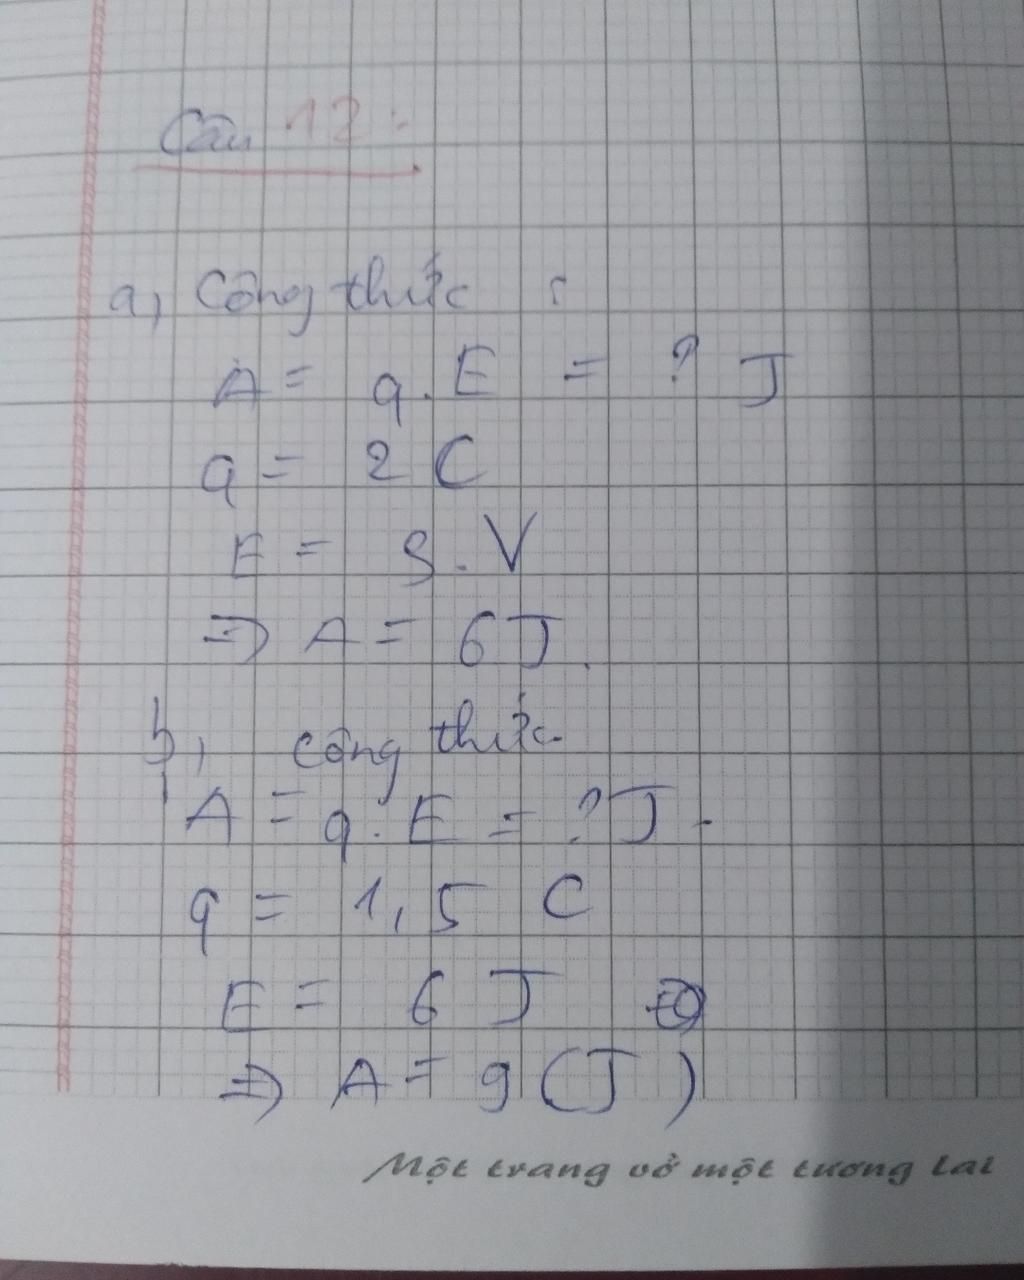 Câu 12:
a, Công thức :
A = q.E = ? J
q = 2 C
E = 3.V
=> A = 6J.
b, công thức
A = q.E = ?J.
q = 1,5 C
E = 6 J
=> A = 9 (J)
Một trang vở một tương lai